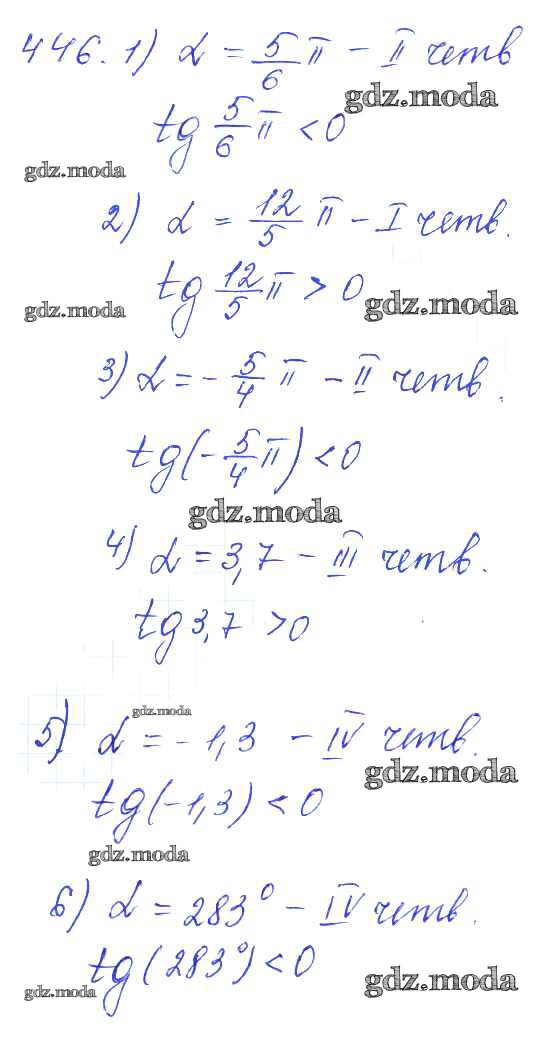 446. 1) α = 5/6 π – II четв
gdz.moda
tg 5/6 π < 0
gdz.moda
2) α = 12/5 π – I четв.
tg 12/5 π > 0
gdz.moda gdz.moda
3) α = - 5/4 π – II четв.
tg(- 5/4 π) < 0
gdz.moda
4) α = 3,7 – III четв.
tg 3,7 > 0
gdz.moda
5) α = -1,3 – IV четв.
gdz.moda
tg(-1,3) < 0
gdz.moda
6) α = 283° – IV четв.
tg(283°) < 0
gdz.moda gdz.moda